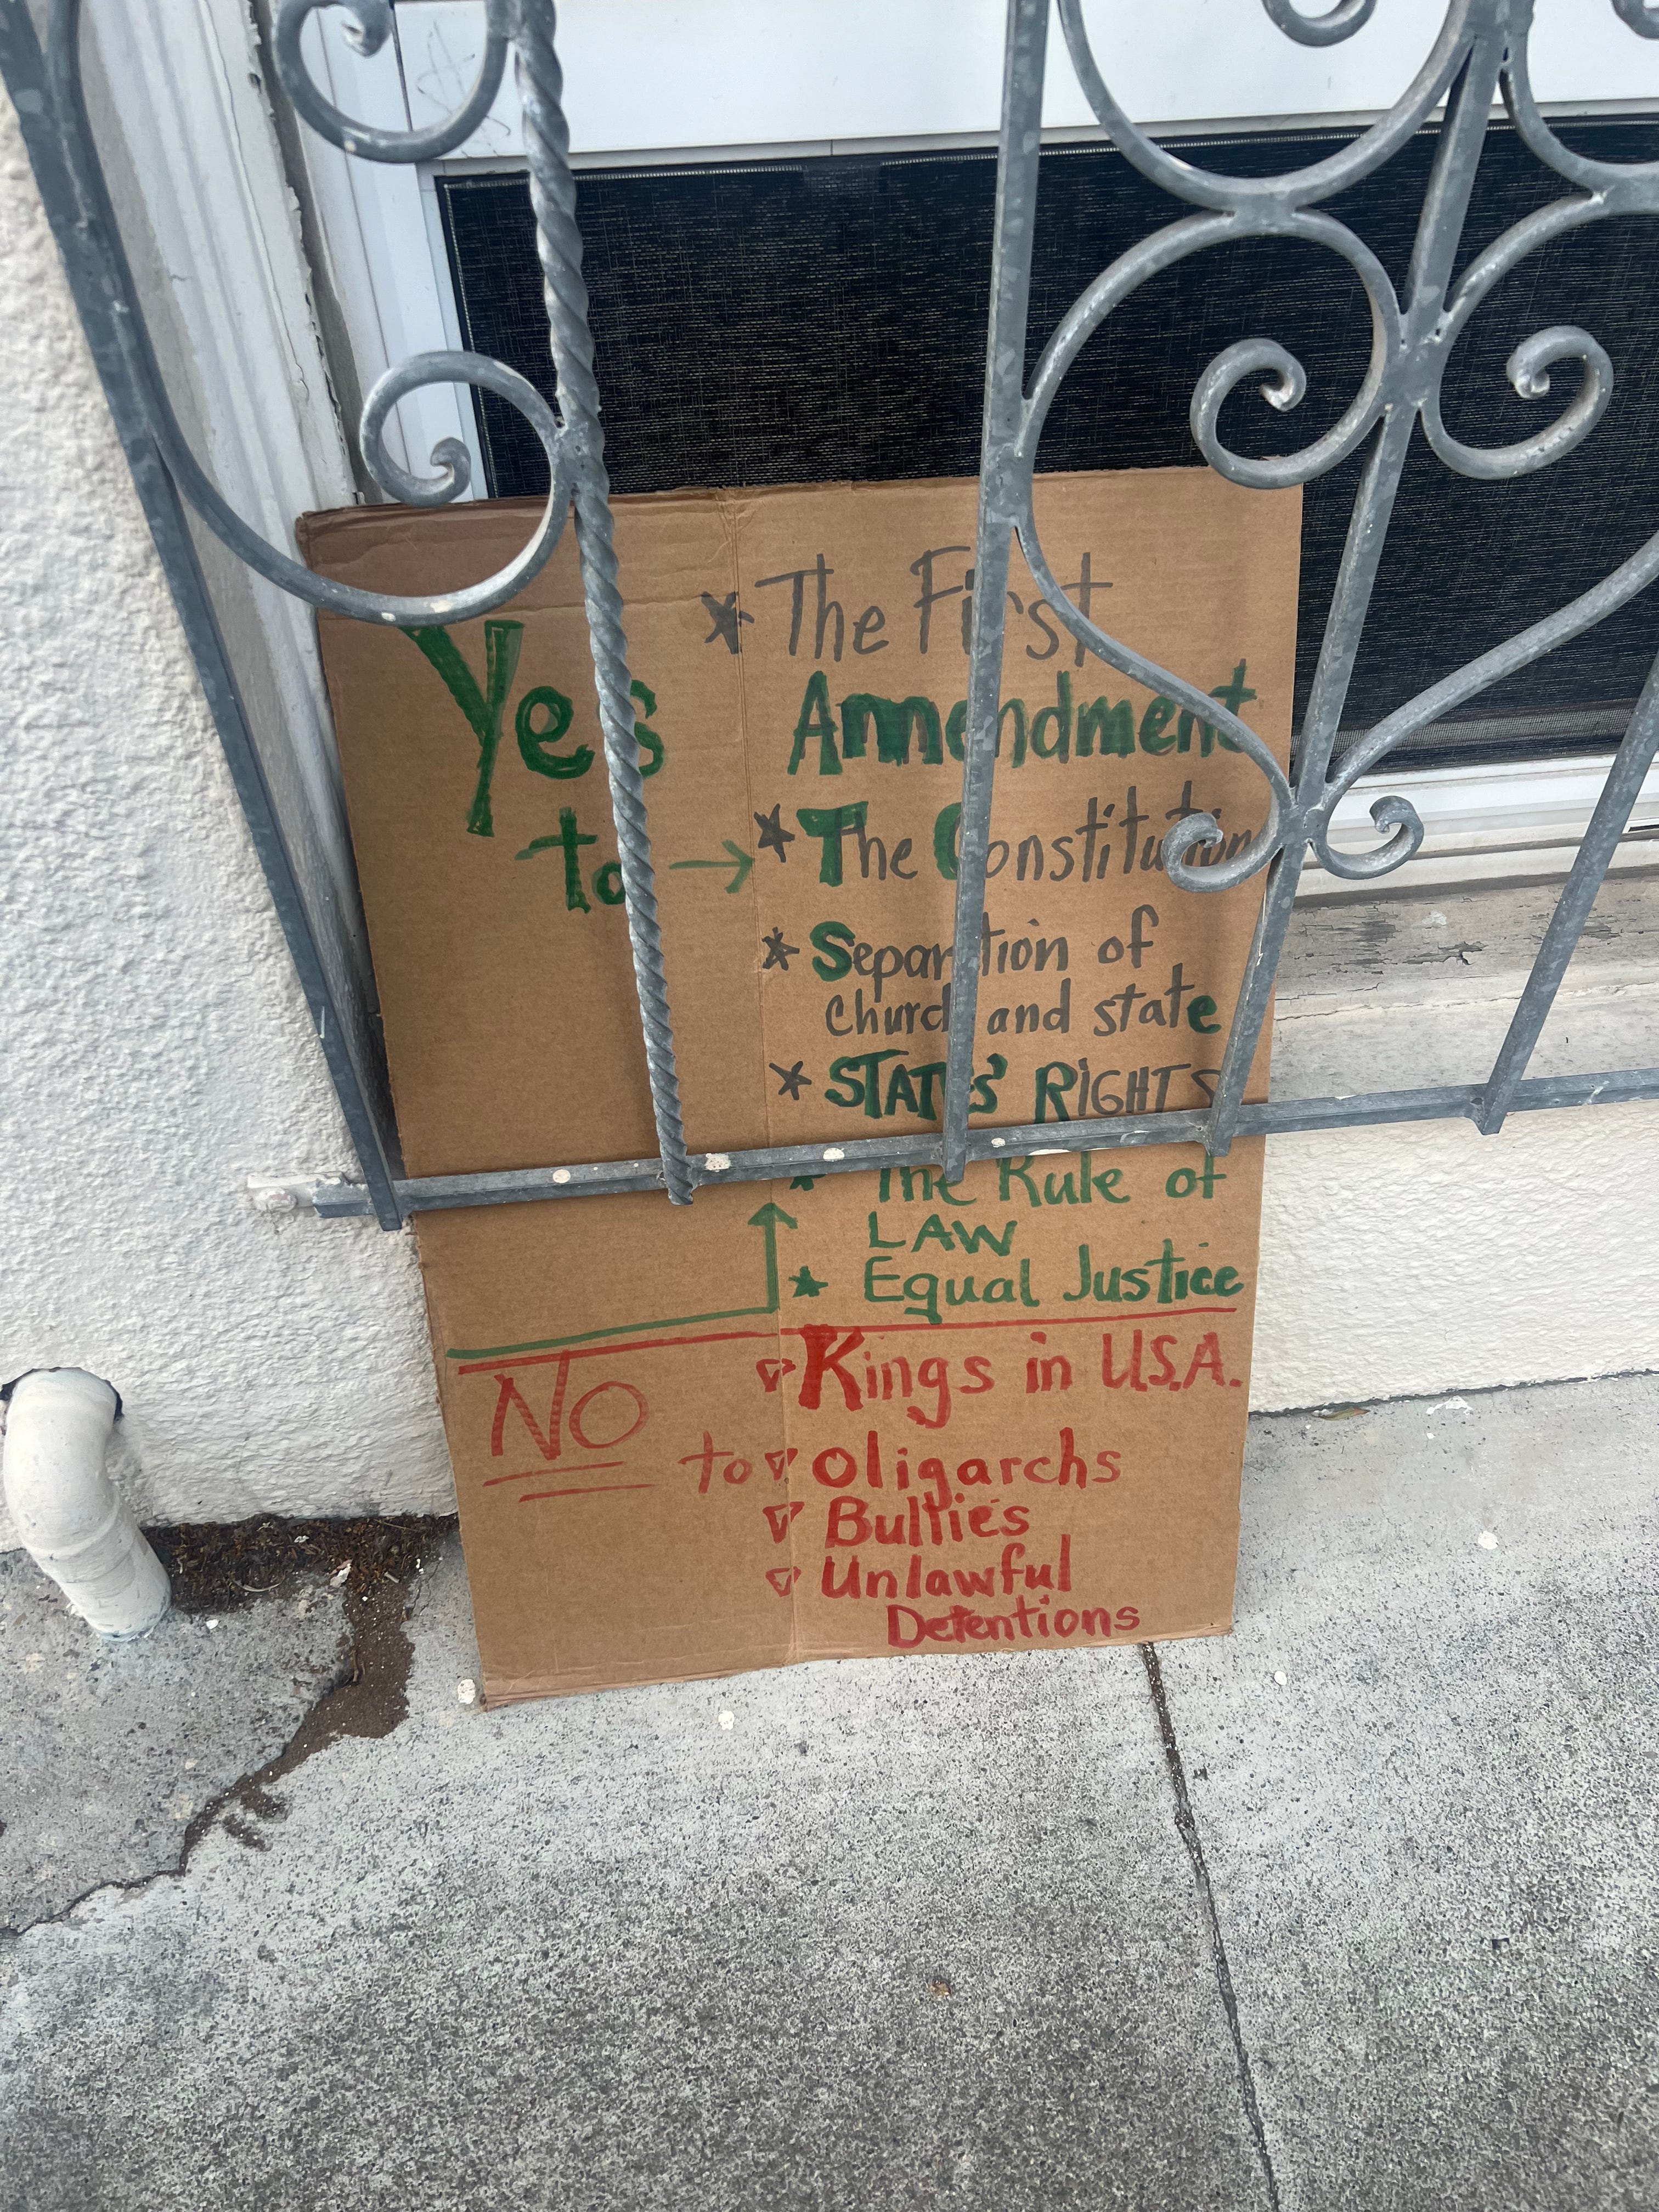 Yes
to →
* The First
Amendment
* The Constitution
* Separation of
Church and state
* STATES' RIGHTS
* The Rule of
LAW
* Equal Justice
NO
to
Kings in U.S.A.
Oligarchs
Bullies
Unlawful
Detentions